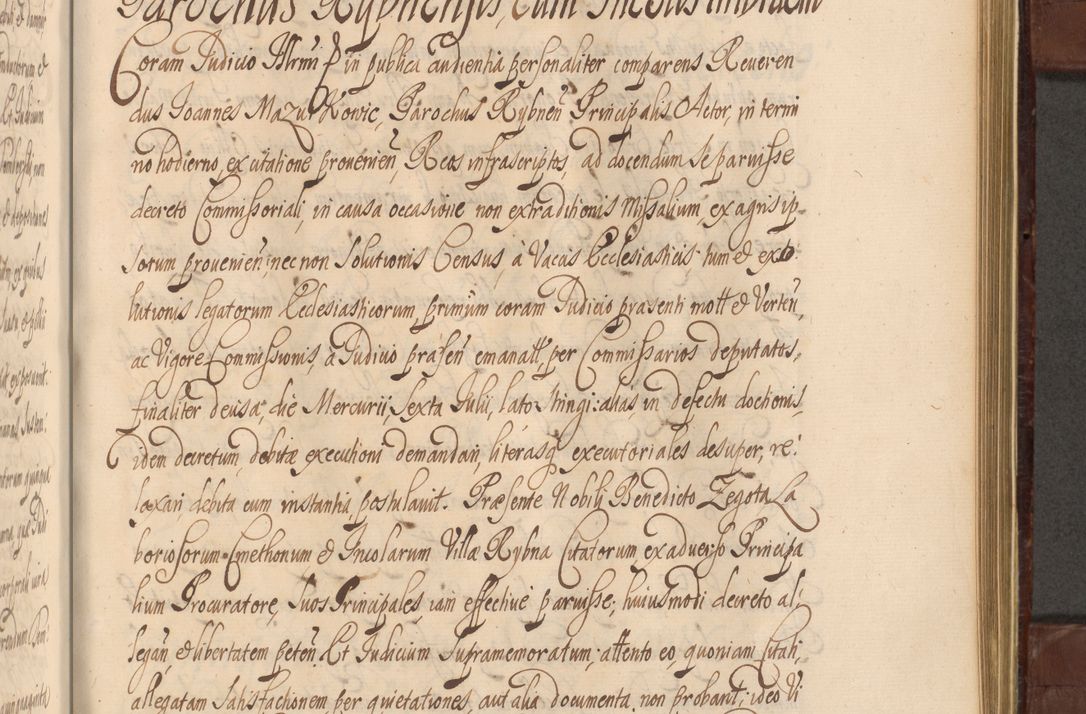 Parochus Rybnensis, cum Incolis ibidem
Coram Judicio Illrmi P in publica audientia personaliter comparens Reveren
dus Joannes Mazurkowic, Parochus Rybnen Principalis Actor, in termi
no hodierno, ex citatione provenien, Reos infrascriptos, ad docendum se paruisse
decreto Commissoriali, in causa occasione non extraditionis Missalium, ex agris ip
sorum provenien: nec non solutionis Census, à Vacis Ecclesiasticis, tum et exo
lutionis legatorum Ecclesiasticorum, primum coram Judicio præsenti mott et Verten,
ac Vigore Commissionis, a Judicio præsen emanatt, per Commissarios deputatos,
finaliter decisa, die Mercurii, sexta Julii, lato stingi: alias in defectu doctionis,
idem decretum, debitæ executioni demandari, literasq executoriales desuper, re:
laxari, debita cum instantia, postulavit. Præsente Nobili Benedicto Zegota, La
boriosorum Cmethonum et Incolarum Villæ Rybna Citatorum, ex adverso Principa
lium Procuratore, suos Principales, iam effective paruisse, huiusmodi decreto al:
legan, et libertatem peten. Et Judicium supramemoratum, attento eo, quoniam Citati,
allegatam satisfactionem, per quietationes, aut alia documenta, non probant; ideo Vi